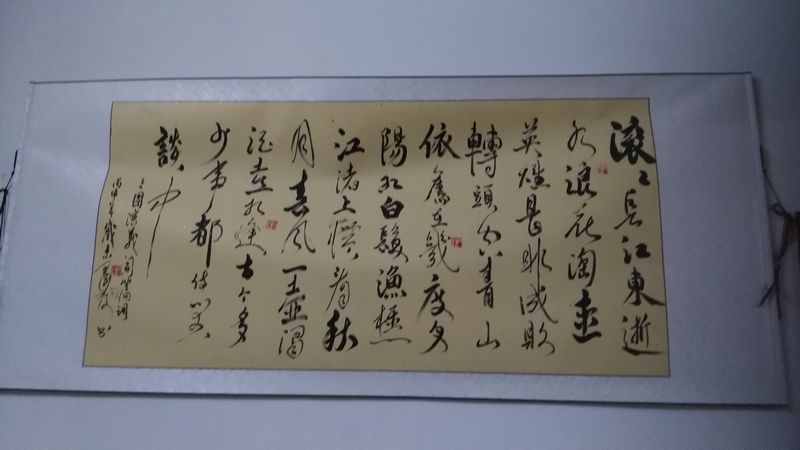 滚々長江東逝
水浪花淘盡
英雄是非成敗
轉頭空青山
依舊在幾度夕
陽紅白髮漁樵
江渚上慣看秋
月春風一壺濁
酒喜相逢古今多
少事都付笑
談中
三國演義開篇詞
丙申年歲末書